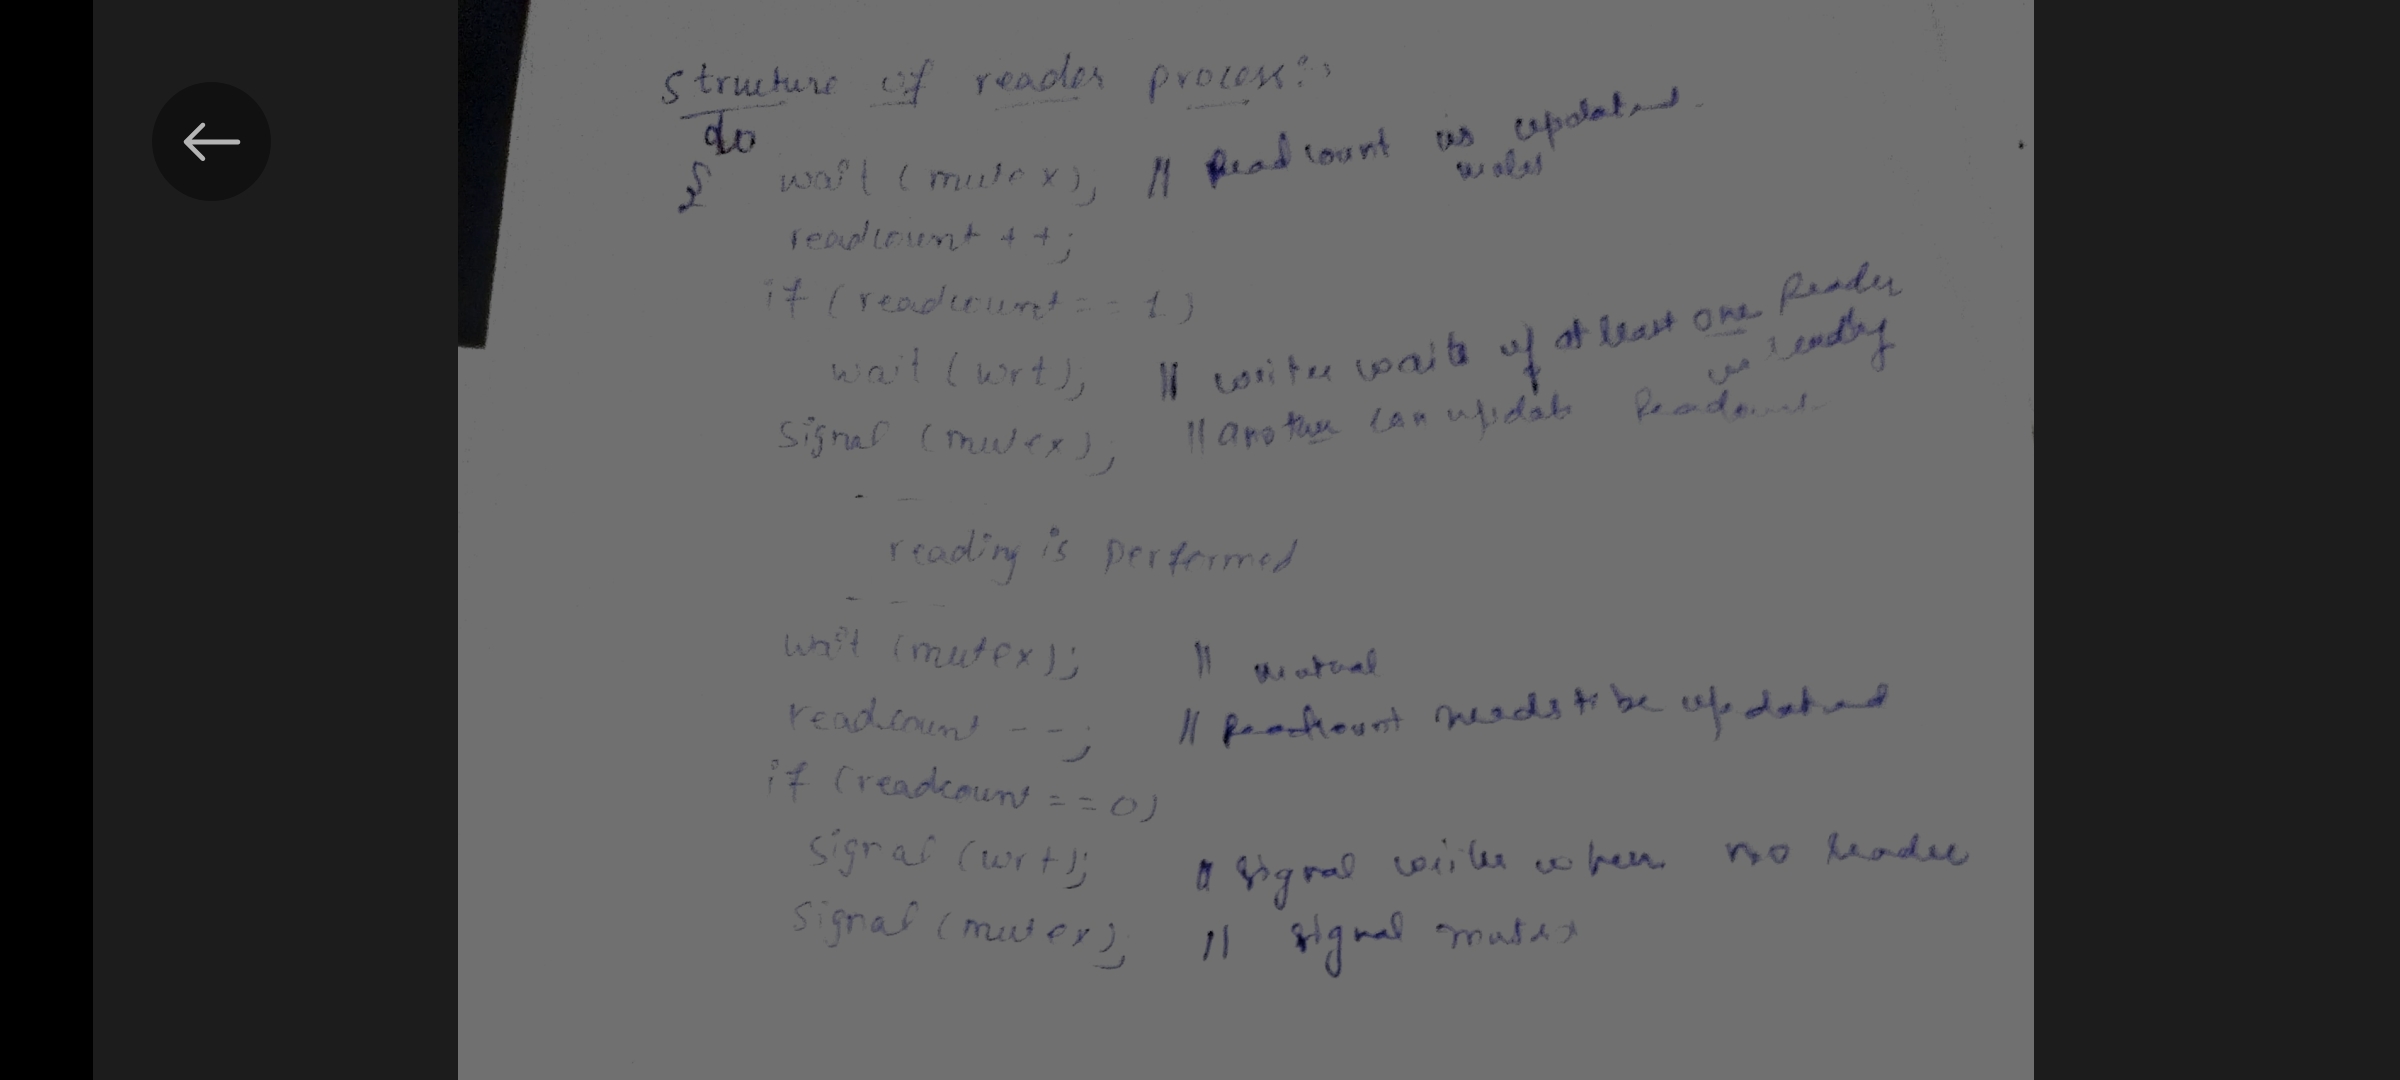 Structure of reader process:
do
{ wait (mutex); // Readcount is updated
readcount ++;
if (readcount == 1)
wait (wrt); // writer waits if at least one Reader is reading
signal (mutex); // another can update Readcount
- -
reading is performed
- - -
wait (mutex); // mutual
readcount --; // Readcount needs to be updated
if (readcount == 0)
signal (wrt); // signal writer when no reader
signal (mutex); // signal mutex